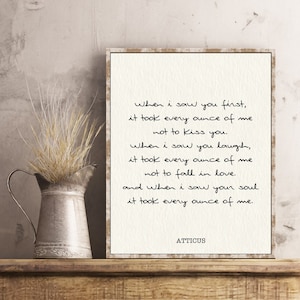 when i saw you first,
it took every ounce of me
not to kiss you.
when i saw you laugh,
it took every ounce of me
not to fall in love.
and when i saw your soul
it took every ounce of me.
ATTICUS